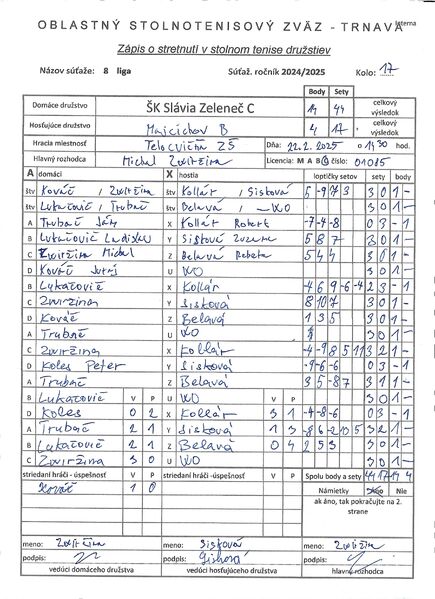 OBLASTNÝ STOLNOTENISOVÝ ZVÄZ - TRNAVA
Interna
Zápis o stretnutí v stolnom tenise družstiev
Názov súťaže: 8 liga Súťaž. ročník 2024/2025 Kolo: 17
Body Sety
Domáce družstvo ŠK Slávia Zeleneč C 14 44 celkový výsledok
Hosťujúce družstvo Majcichov B 4 17 celkový výsledok
Hracia miestnosť Telocvičňa ZŠ Dňa: 22.2.2025 o 14 30 hod.
Hlavný rozhodca Michal Zviržina Licencia: M A B C číslo: 01085
A domáci X hostia loptičky setov sety body
štv Kováč / Zviržina štv Kollár / Sisková 5 -9 7 3 3 0 1 -
štv Lukačovič / Trubač štv Belavá / - WO 3 0 1 -
A Trubač Ján X Kollár Robert -7 -4 -8 0 3 - 1
B Lukačovič Ladislav Y Sisková Zuzana 5 8 7 3 0 1 -
C Zviržina Michal Z Belavá Rebeka 5 4 4 3 0 1 -
D Kováč Juraj U WO 3 0 1 -
B Lukačovič X Kollár -4 6 9 -6 -4 2 3 - 1
C Zviržina Y Sisková 8 10 7 3 0 1 -
D Kováč Z Belavá 1 3 5 3 0 1 -
A Trubač U WO 3 0 1 -
C Zviržina X Kollár -4 -9 8 5 11 3 2 1 -
D Koles Peter Y Sisková -9 -6 -6 0 3 - 1
A Trubač Z Belavá 3 5 -8 7 3 1 1 -
B Lukačovič V P U WO V P 3 0 1 -
D Koles 0 2 X Kollár 3 1 -4 -8 -6 0 3 - 1
A Trubač 2 1 Y Sisková 1 3 -8 6 -2 10 5 3 2 1 -
B Lukačovič 2 1 Z Belavá 0 4 2 5 3 3 0 1 -
C Zviržina 3 0 U WO 3 0 1 -
striedaní hráči - úspešnosť V P striedaní hráči - úspešnosť V P Spolu body a sety 44 17 14 4
Kováč 1 0 Námietky Áno Nie
ak áno, tak pokračujte na 2. strane
meno: Zviržina meno: Sisková meno: Zviržina
podpis: podpis: Sisková podpis:
vedúci domáceho družstva vedúci hosťujúceho družstva hlavný rozhodca